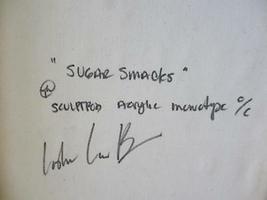 "SUGAR SMACKS"
SCULPTED Acrylic monotype o/c